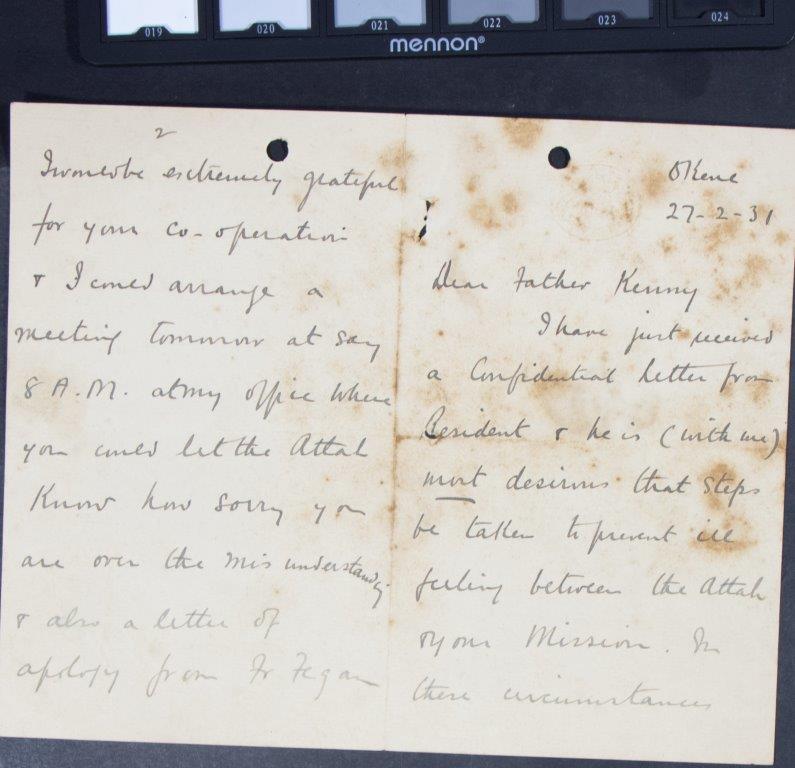 019 020 021 022 023 024
mennon®
Okene
27-2-31
Dear Father Kenny
I have just received
a Confidential letter from
Resident & he is (with me)
most desirous that steps
be taken to prevent ill
feeling between the Attah
& your Mission. In
these circumstances
2
I would be extremely grateful
for your co-operation
& I could arrange a
meeting tomorrow at say
8 A.M. at my office where
you could let the Attah
Know how sorry you
are over the misunderstanding
& also a letter of
apology from Fr Fegan